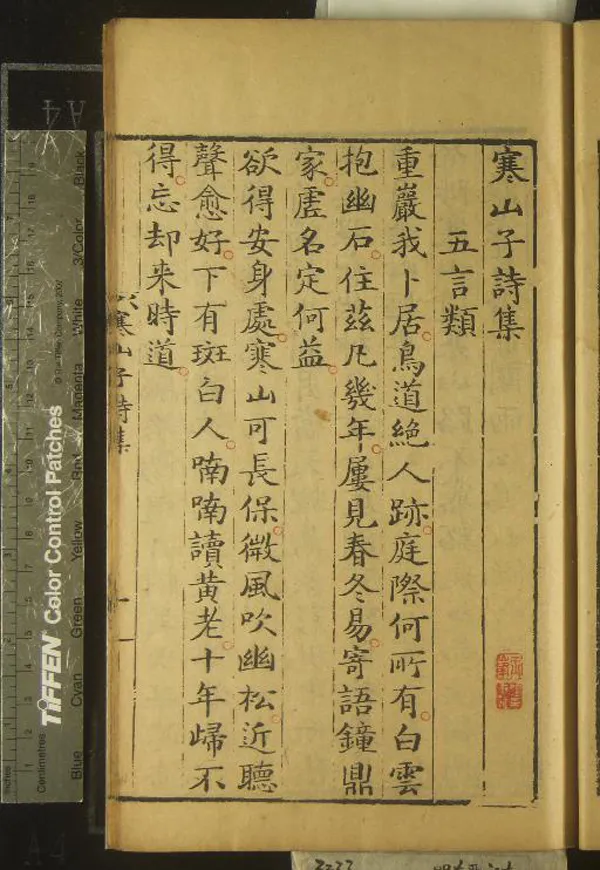 寒山子詩集
五言類
重巖我卜居鳥道絶人跡庭際何所有白雲
抱幽石住茲凡幾年屢見春冬易寄語鐘鼎
家虛名定何益
欲得安身處寒山可長保微風吹幽松近聽
聲愈好下有斑白人喃喃讀黃老十年歸不
得忘却來時道
寒山子詩集
A4
TIFFEN Color Control Patches
© The Tiffen Company, 2002
Blue Cyan Green Yellow Red Magenta White 3/Color Black
Inches
Centimetres